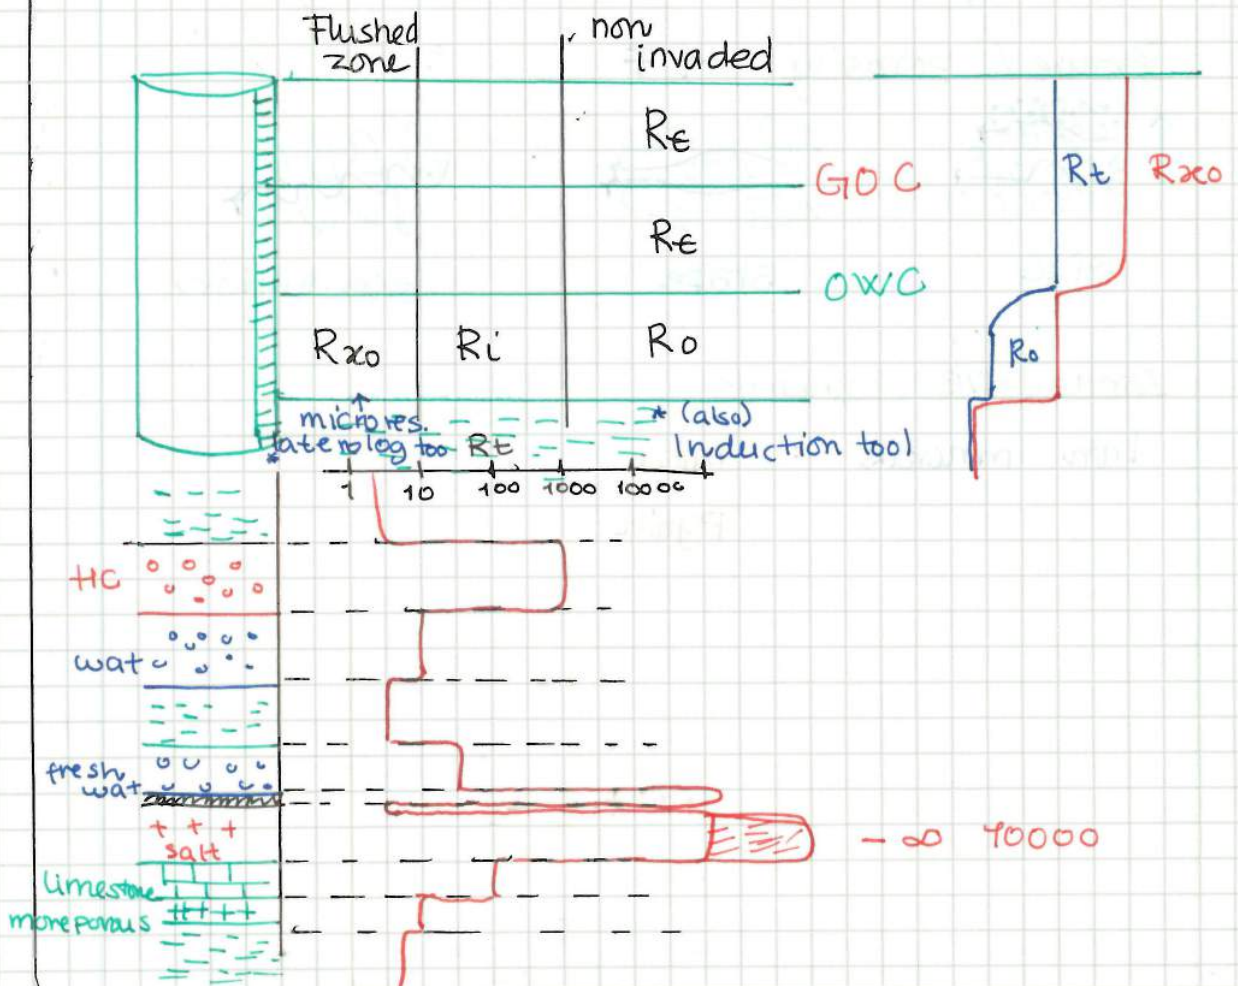 Flushed
zone
non
invaded
Rt
GOC
Rt
OWC
Rxo Ri Ro
Rt Rxo
Ro
microres.
laterolog too Rt
* (also)
Induction tool
*
1 10 100 1000 10000
HC
wat
fresh
wat
+ + +
salt
- ∞ 70000
limestone
more porous